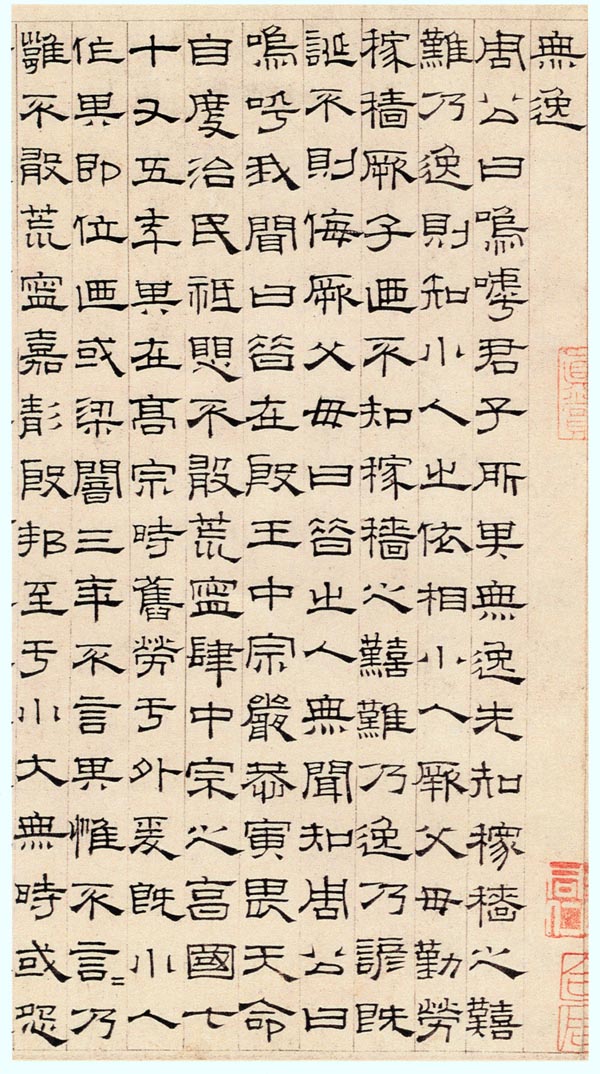 無逸
周公曰嗚嘑君子所其無逸先知稼穡之囏
難乃逸則知小人之依相小人厥父母勤勞
稼穡厥子迺不知稼穡之囏難乃逸乃諺既
誕不則侮厥父母曰昔之人無聞知周公曰
嗚呼我聞曰昔在殷王中宗嚴恭寅畏天命
自度治民祗愳不敢荒寧肆中宗之亯國七
十又五年其在高宗時舊勞于外爰既小人
作其即位迺或梁闇三年不言其惟不言=乃
雝不敢荒寧嘉殷邦至于小大無時或怨